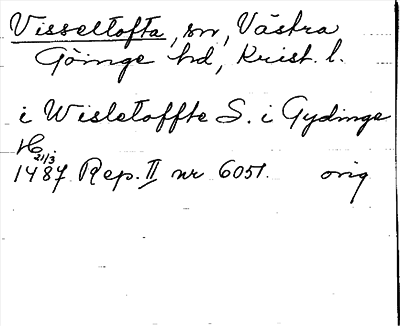 Visseltofta, sn, Västra
Göinge hd, Krist. l.
i Wisletoffte S. i Gydinge
H.
21/3
1487 Rep. II nr 6051. orig